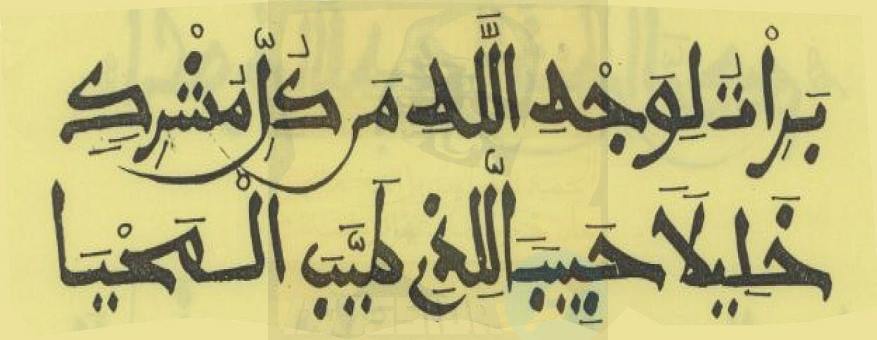 بَرِاْتُ لِوَجْهِ اللَّهِ مِن كُلِّ مُشْرِكِ
خَلِيلاَ حَبِيبَا لِّلذِي طَيَّبَ الْمَحْيَا